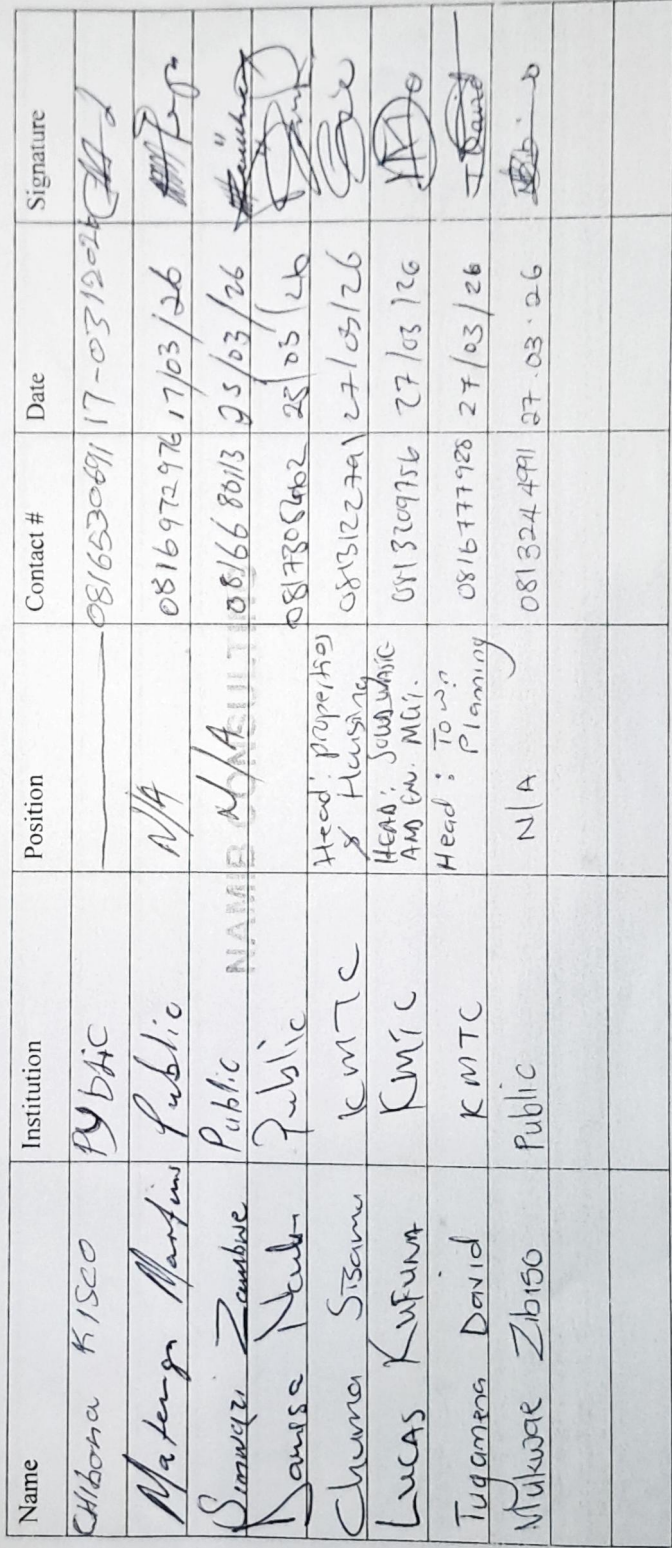 Name Institution Position Contact # Date Signature
CHIBONA KISCO Public 0816530691 17-03/2026
Matenga Martins Public N/A 0816972976 17/03/26
Zambwe Public N/A 0816680113 25/03/26
NAMIB CONSULTING
Public 25/03/26
Chuma Sisamu KMTC Head: Properties & Housing 0813122791 27/03/26
LUCAS KUFUNA KMTC HEAD: SOLID WASTE AND ENV. MGT. 0813209756 27/03/26
Tugamena David KMTC Head: Town Planning 0816777928 27/03/26 David
Mukwae Zibiso Public N/A 0813244991 27.03.26